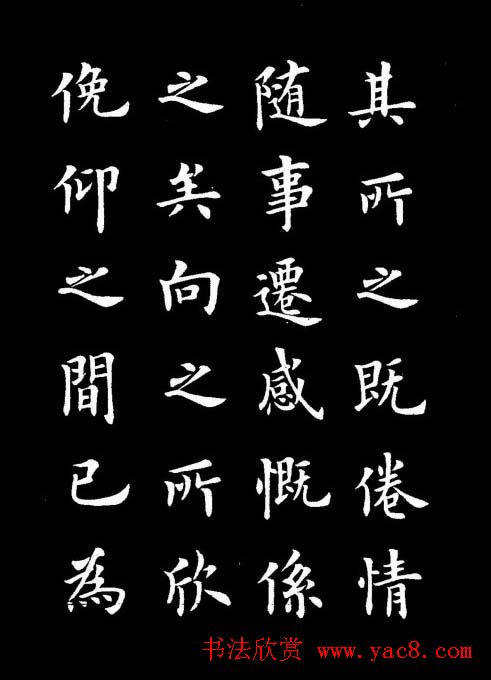 其所之既倦情
随事遷感慨係
之矣向之所欣
俛仰之間已為
书法欣赏 www.yac8.com